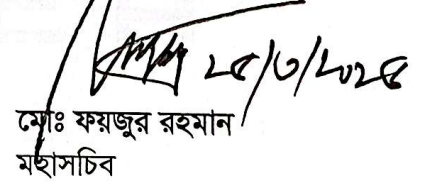 ২৫/৩/২০২৫
মোঃ ফয়জুর রহমান
মহাসচিব